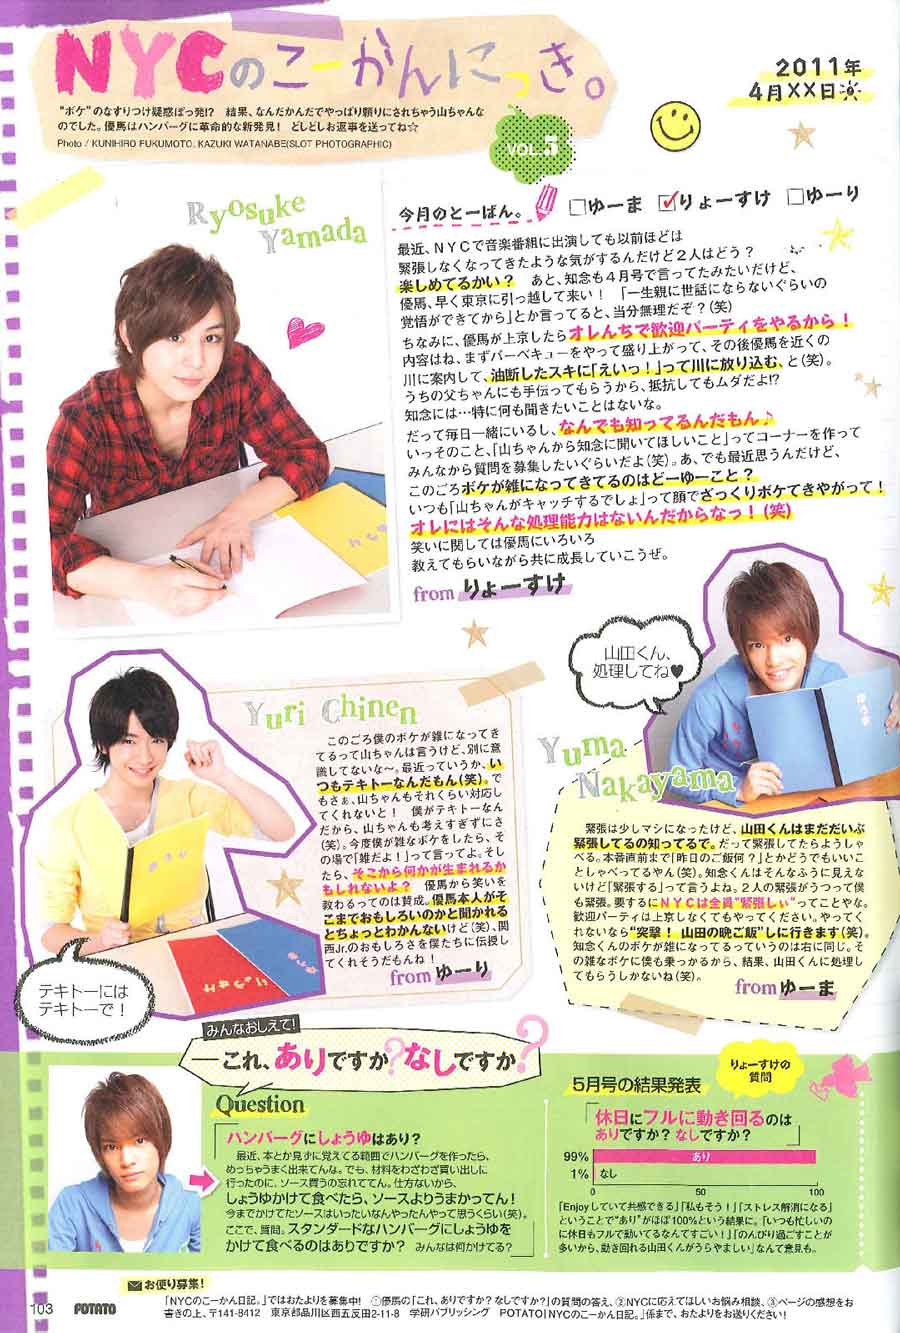 NYCのこーかんにっき。
2011年
4月××日
“ボケ”のなすりつけ疑惑ぼっ発!?　結果、なんだかんだでやっぱり頼りにされちゃう山ちゃんな
のでした。優馬はハンバーグに革命的な新発見！　どしどしお返事を送ってね☆
Photo / KUNIHIRO FUKUMOTO, KAZUKI WATANABE(SLOT PHOTOGRAPHIC)
VOL.5
Ryosuke
Yamada
今月のとーばん。 □ゆーま ☑りょーすけ □ゆーり
最近、NYCで音楽番組に出演しても以前ほどは
緊張しなくなってきたような気がするんだけど2人はどう？
楽しめてるかい？　あと、知念も4月号で言ってたみたいだけど、
優馬、早く東京に引っ越して来い！　「一生親に世話にならないぐらいの
覚悟ができてから」とか言ってると、当分無理だぞ？(笑)
ちなみに、優馬が上京したらオレんちで歓迎パーティをやるから！
内容はね、まずバーベキューをやって盛り上がって、その後優馬を近くの
川に案内して、油断したスキに「えいっ！」って川に放り込む、と(笑)。
うちの父ちゃんにも手伝ってもらうから、抵抗してもムダだよ!?
知念には…特に何も聞きたいことはないな。
だって毎日一緒にいるし、なんでも知ってるんだもん♪
いっそのこと、「山ちゃんから知念に聞いてほしいこと」ってコーナーを作って
みんなから質問を募集したいぐらいだよ(笑)。あ、でも最近思うんだけど、
このごろボケが雑になってきてるのはどーゆーこと？
いつも「山ちゃんがキャッチするでしょ」って顔でざっくりボケてきやがって！
オレにはそんな処理能力はないんだからなっ！(笑)
笑いに関しては優馬にいろいろ
教えてもらいながら共に成長していこうぜ。
from りょーすけ
山田くん、
処理してね♥
Yuri Chinen
このごろ僕のボケが雑になってき
てるって山ちゃんは言うけど、別に意
識してないな〜。最近っていうか、い
つもテキトーなんだもん(笑)。で
もさぁ、山ちゃんもそれくらい対応し
てくれないと！　僕がテキトーなん
だから、山ちゃんも考えすぎずにさ
(笑)。今度僕が雑なボケをしたら、そ
の場で「雑だよ！」って言ってよ。そし
たら、そこから何かが生まれるか
もしれないよ？　優馬から笑いを
教わるってのは賛成。優馬本人がそ
こまでおもしろいのかと聞かれる
とちょっとわかんないけど(笑)、関
西Jr.のおもしろさを僕たちに伝授し
てくれそうだもんね！
from ゆーり
テキトーには
テキトーで！
Yuma
Nakayama
緊張は少しマシになったけど、山田くんはまだだいぶ
緊張してるの知ってるで。だって緊張してたらようしゃ
べる。本番直前まで「昨日のご飯何？」とかどうでもいいこ
としゃべってるやん(笑)。知念くんはそんなふうに見え
ないけど「緊張する」って言うよね。2人の緊張がうつって僕
も緊張。要するにNYCは全員“緊張しぃ”ってことやな。
歓迎パーティは上京しなくてもやってください。やってく
れないなら“突撃！ 山田の晩ご飯”しに行きます(笑)。
知念くんのボケが雑になってるっていうのは右に同じ。そ
の雑なボケに僕も乗っかるから、結果、山田くんに処理し
てもらうしかないね(笑)。
from ゆーま
みんなおしえて!
―これ、ありですか?なしですか?
Question
ハンバーグにしょうゆはあり？
最近、本とか見ずに覚えてる範囲でハンバーグを作ったら、
めっちゃうまく出来てんな。でも、材料をわざわざ買い出しに
行ったのに、ソース買うの忘れててん。仕方ないから、
しょうゆかけて食べたら、ソースよりうまかってん！
今までかけてたソースはいったいなんやったんやって思うくらい(笑)。
ここで、質問。スタンダードなハンバーグにしょうゆを
かけて食べるのはありですか？　みんなは何かけてる？
5月号の結果発表
りょーすけの
質問
「休日にフルに動き回るのは
ありですか？ なしですか？」
99% あり
1% なし
0 50 100
「Enjoyしていて共感できる」「私もそう！」「ストレス解消になる」
ということで“あり”がほぼ100%という結果に。「いつも忙しいの
に休日もフルで動いてるなんてすごい！」「のんびり過ごすことが
多いから、動き回れる山田くんがうらやましい」なんて意見も。
お便り募集!
「NYCのこーかん日記。」ではおたよりを募集中！　①優馬の「これ、ありですか？なしですか？」の質問の答え、②NYCに応えてほしいお悩み相談、③ページの感想をお
書きの上、〒141-8412　東京都品川区西五反田2-11-8　学研パブリッシング　POTATO「NYCのこーかん日記。」係まで、おたよりをお送りください！
103 POTATO